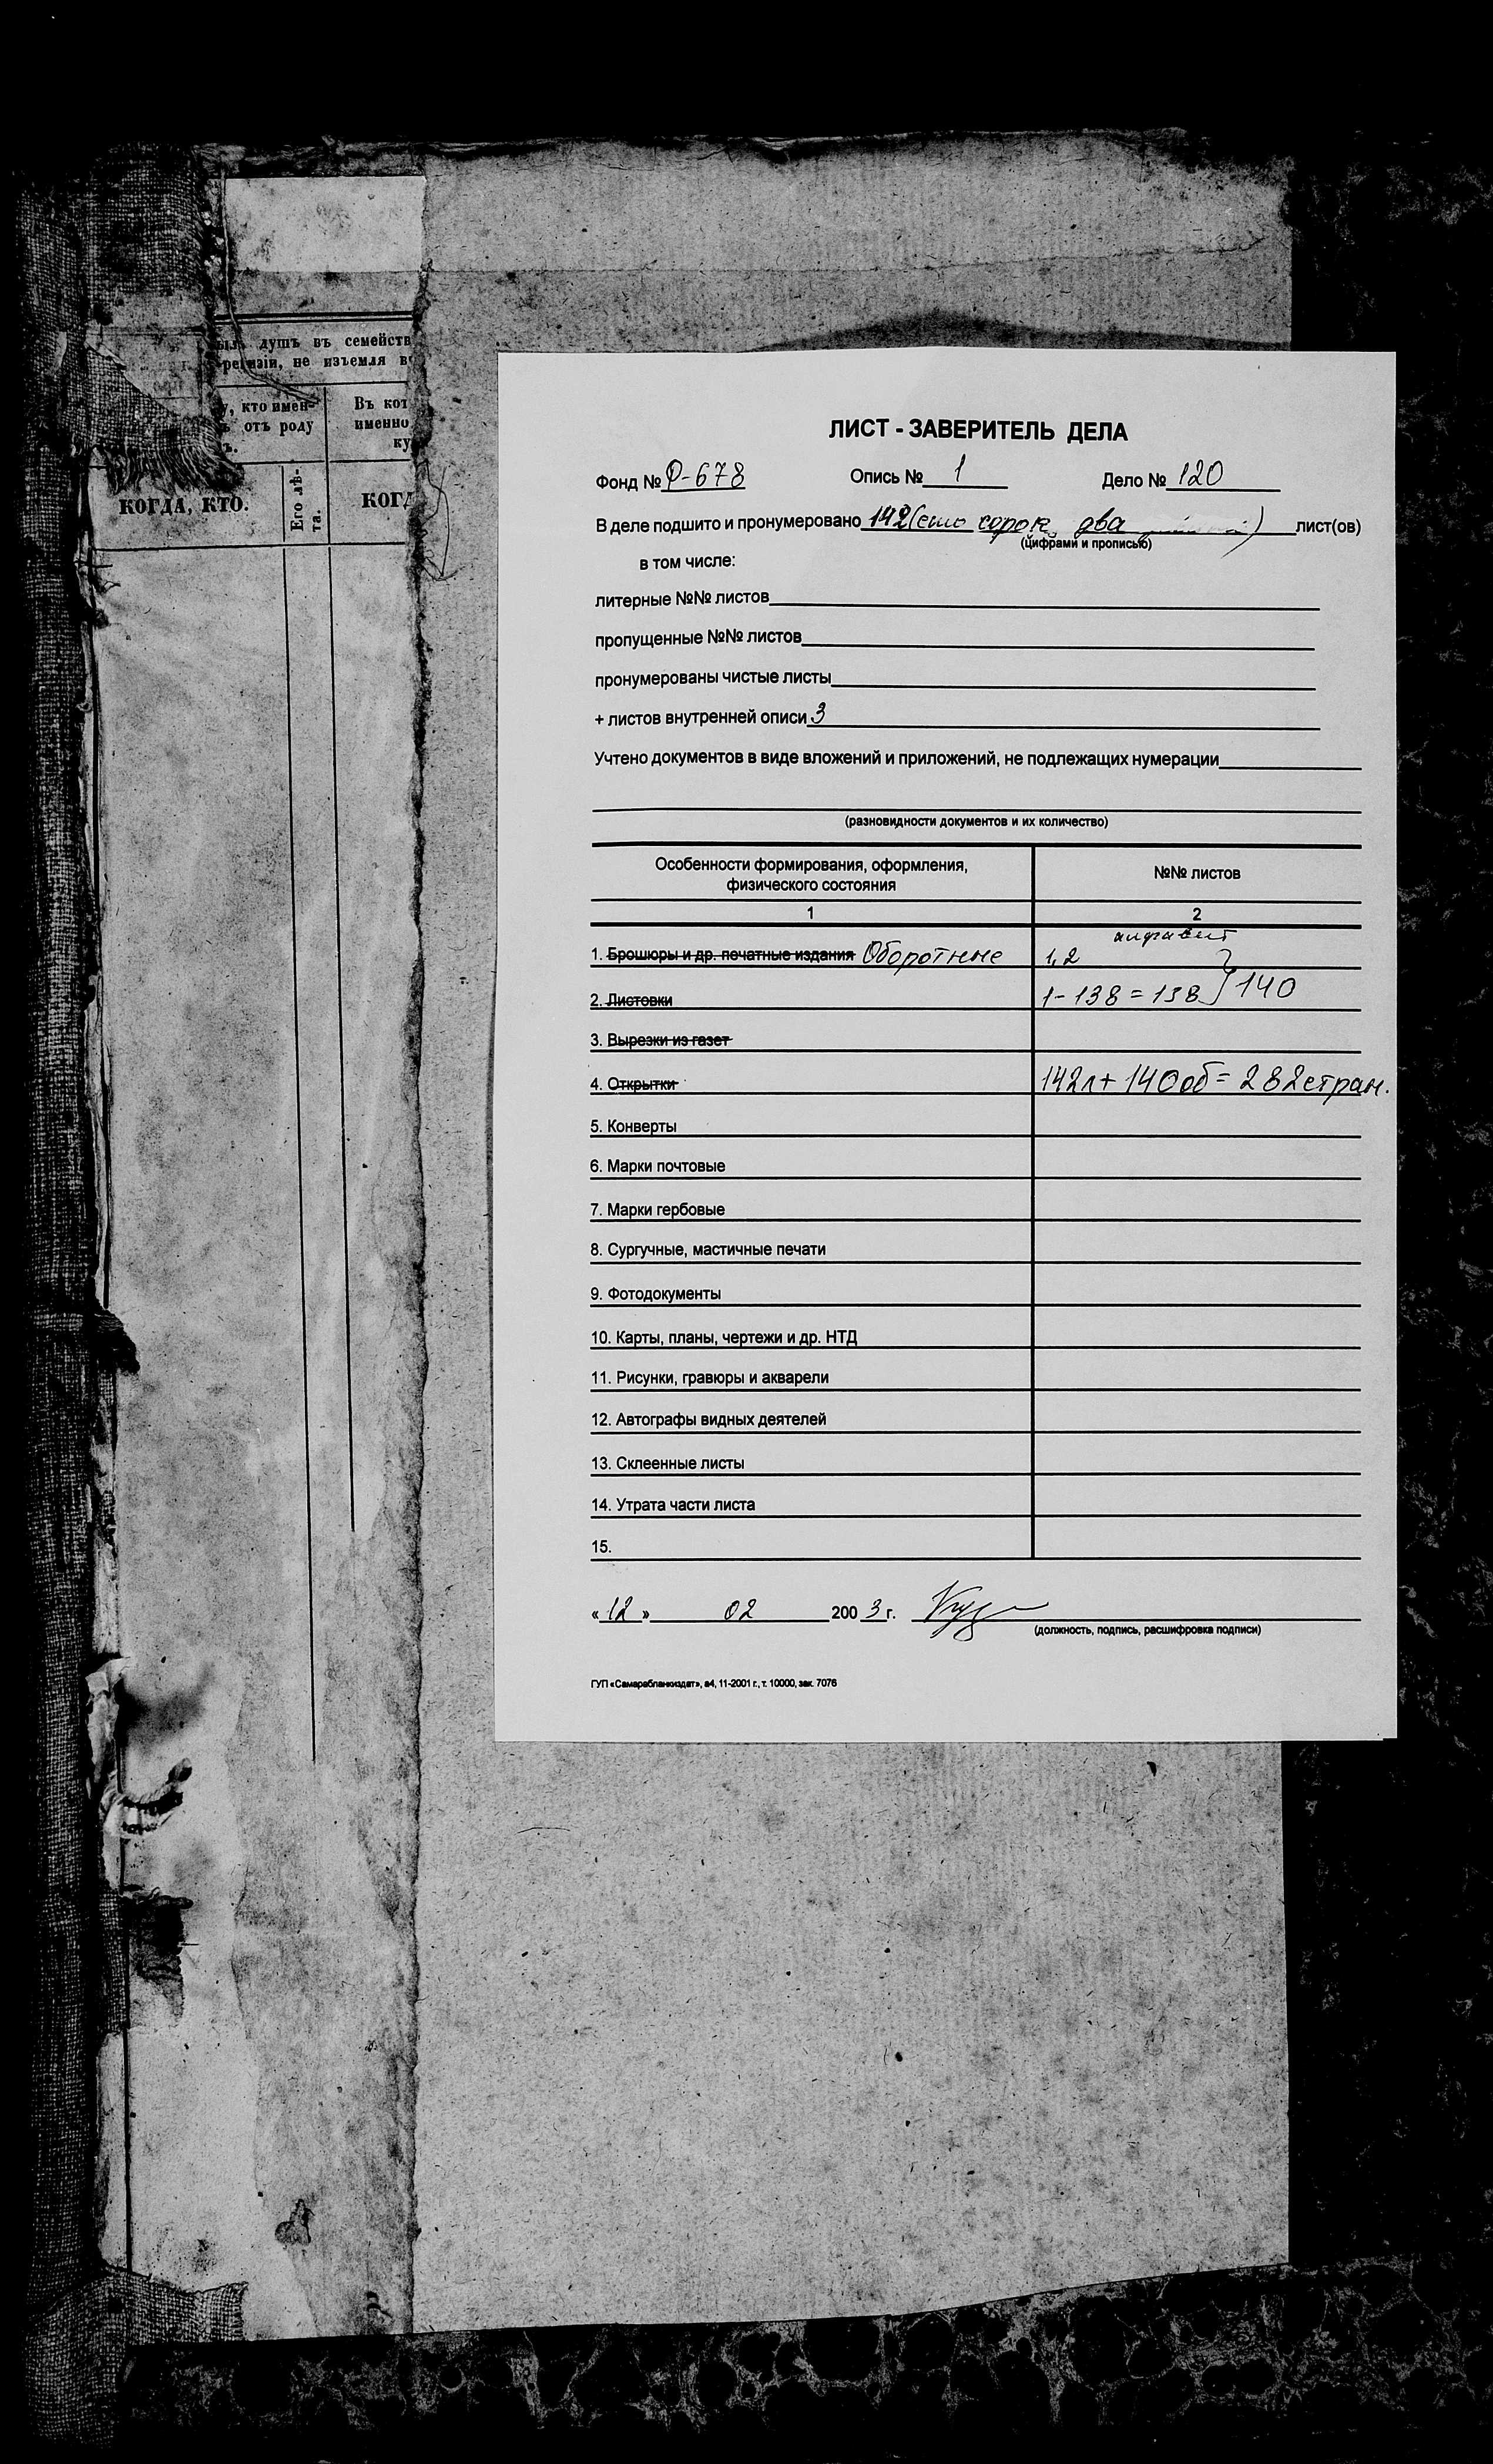 душъ въ семейств
ревизіи, не изъемля в
у, кто имен-
отъ роду
Въ кот
именно
ку
КОГДА, КТО.
Его лѣ-
та.
КОГД
ЛИСТ - ЗАВЕРИТЕЛЬ ДЕЛА
Фонд № Р-678 Опись № 1 Дело № 120
В деле подшито и пронумеровано 142 (сто сорок два) лист(ов)
(цифрами и прописью)
в том числе:
литерные №№ листов
пропущенные №№ листов
пронумерованы чистые листы
+ листов внутренней описи 3
Учтено документов в виде вложений и приложений, не подлежащих нумерации
(разновидности документов и их количество)
Особенности формирования, оформления,
физического состояния
№№ листов
1 2
алфавит
1. Брошюры и др. печатные издания Оборотные 1,2
2. Листовки 1-138 = 138 } 140
3. Вырезки из газет
4. Открытки 142л + 140 об = 282 стран.
5. Конверты
6. Марки почтовые
7. Марки гербовые
8. Сургучные, мастичные печати
9. Фотодокументы
10. Карты, планы, чертежи и др. НТД
11. Рисунки, гравюры и акварели
12. Автографы видных деятелей
13. Склеенные листы
14. Утрата части листа
15.
« 12 » 02 200 3 г.
(должность, подпись, расшифровка подписи)
ГУП «Самарабланкиздат», а4, 11-2001 г., т. 10000, зак. 7076